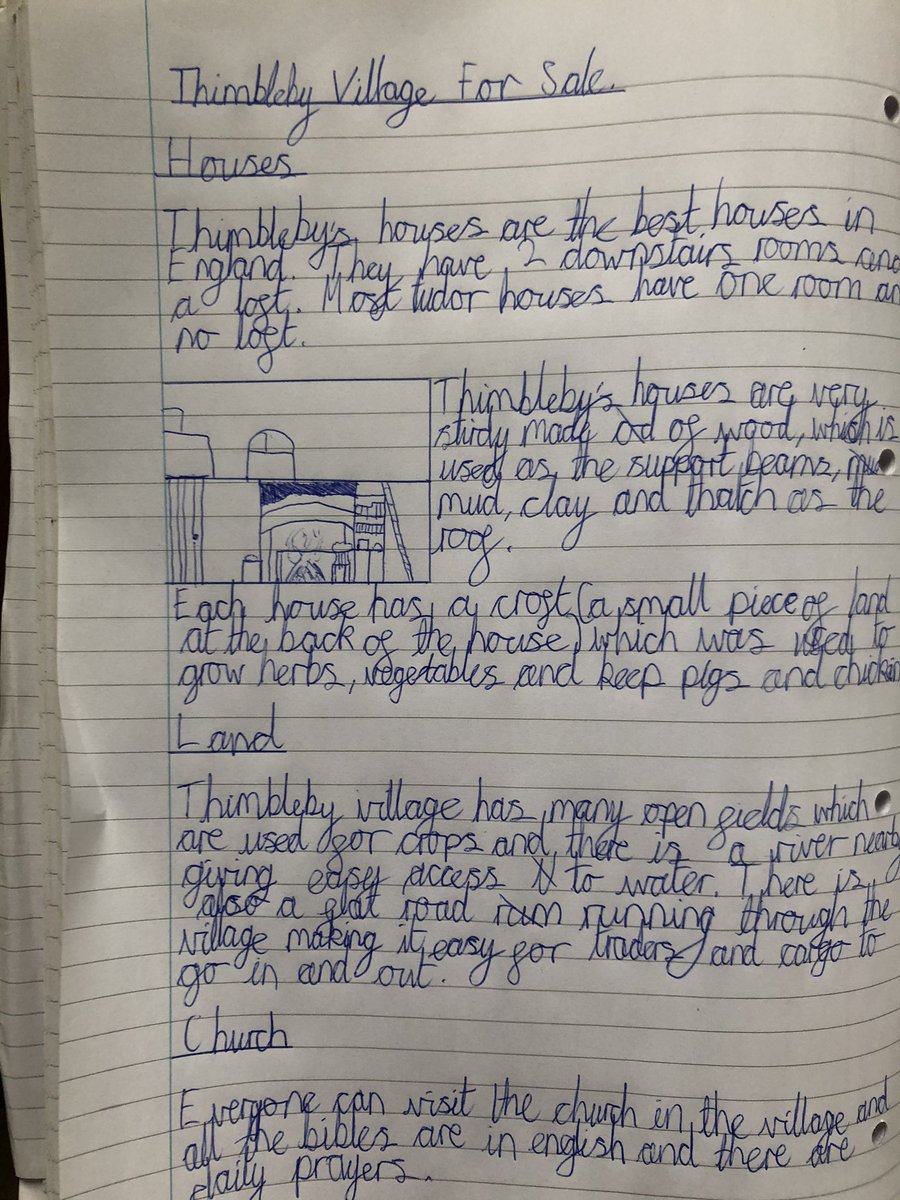 Thimbleby Village For Sale.
Houses
Thimbleby's houses are the best houses in
England. They have 2 downstairs rooms and
a loft. Most tudor houses have one room an
no loft.
Thimbleby's houses are very
sturdy made out of wood, which is
used as the support beams,
mud, clay and thatch as the
roof.
Each house has a croft (a small piece of land
at the back of the house) which was used to
grow herbs, vegetables and keep pigs and chicken
Land
Thimbleby village has many open fields which
are used for crops and there is a river nearby
giving easy access to water. There is
also a flat road running through the
village making it easy for traders and cargo to
go in and out.
Church
Everyone can visit the church in the village and
all the bibles are in english and there are
daily prayers.